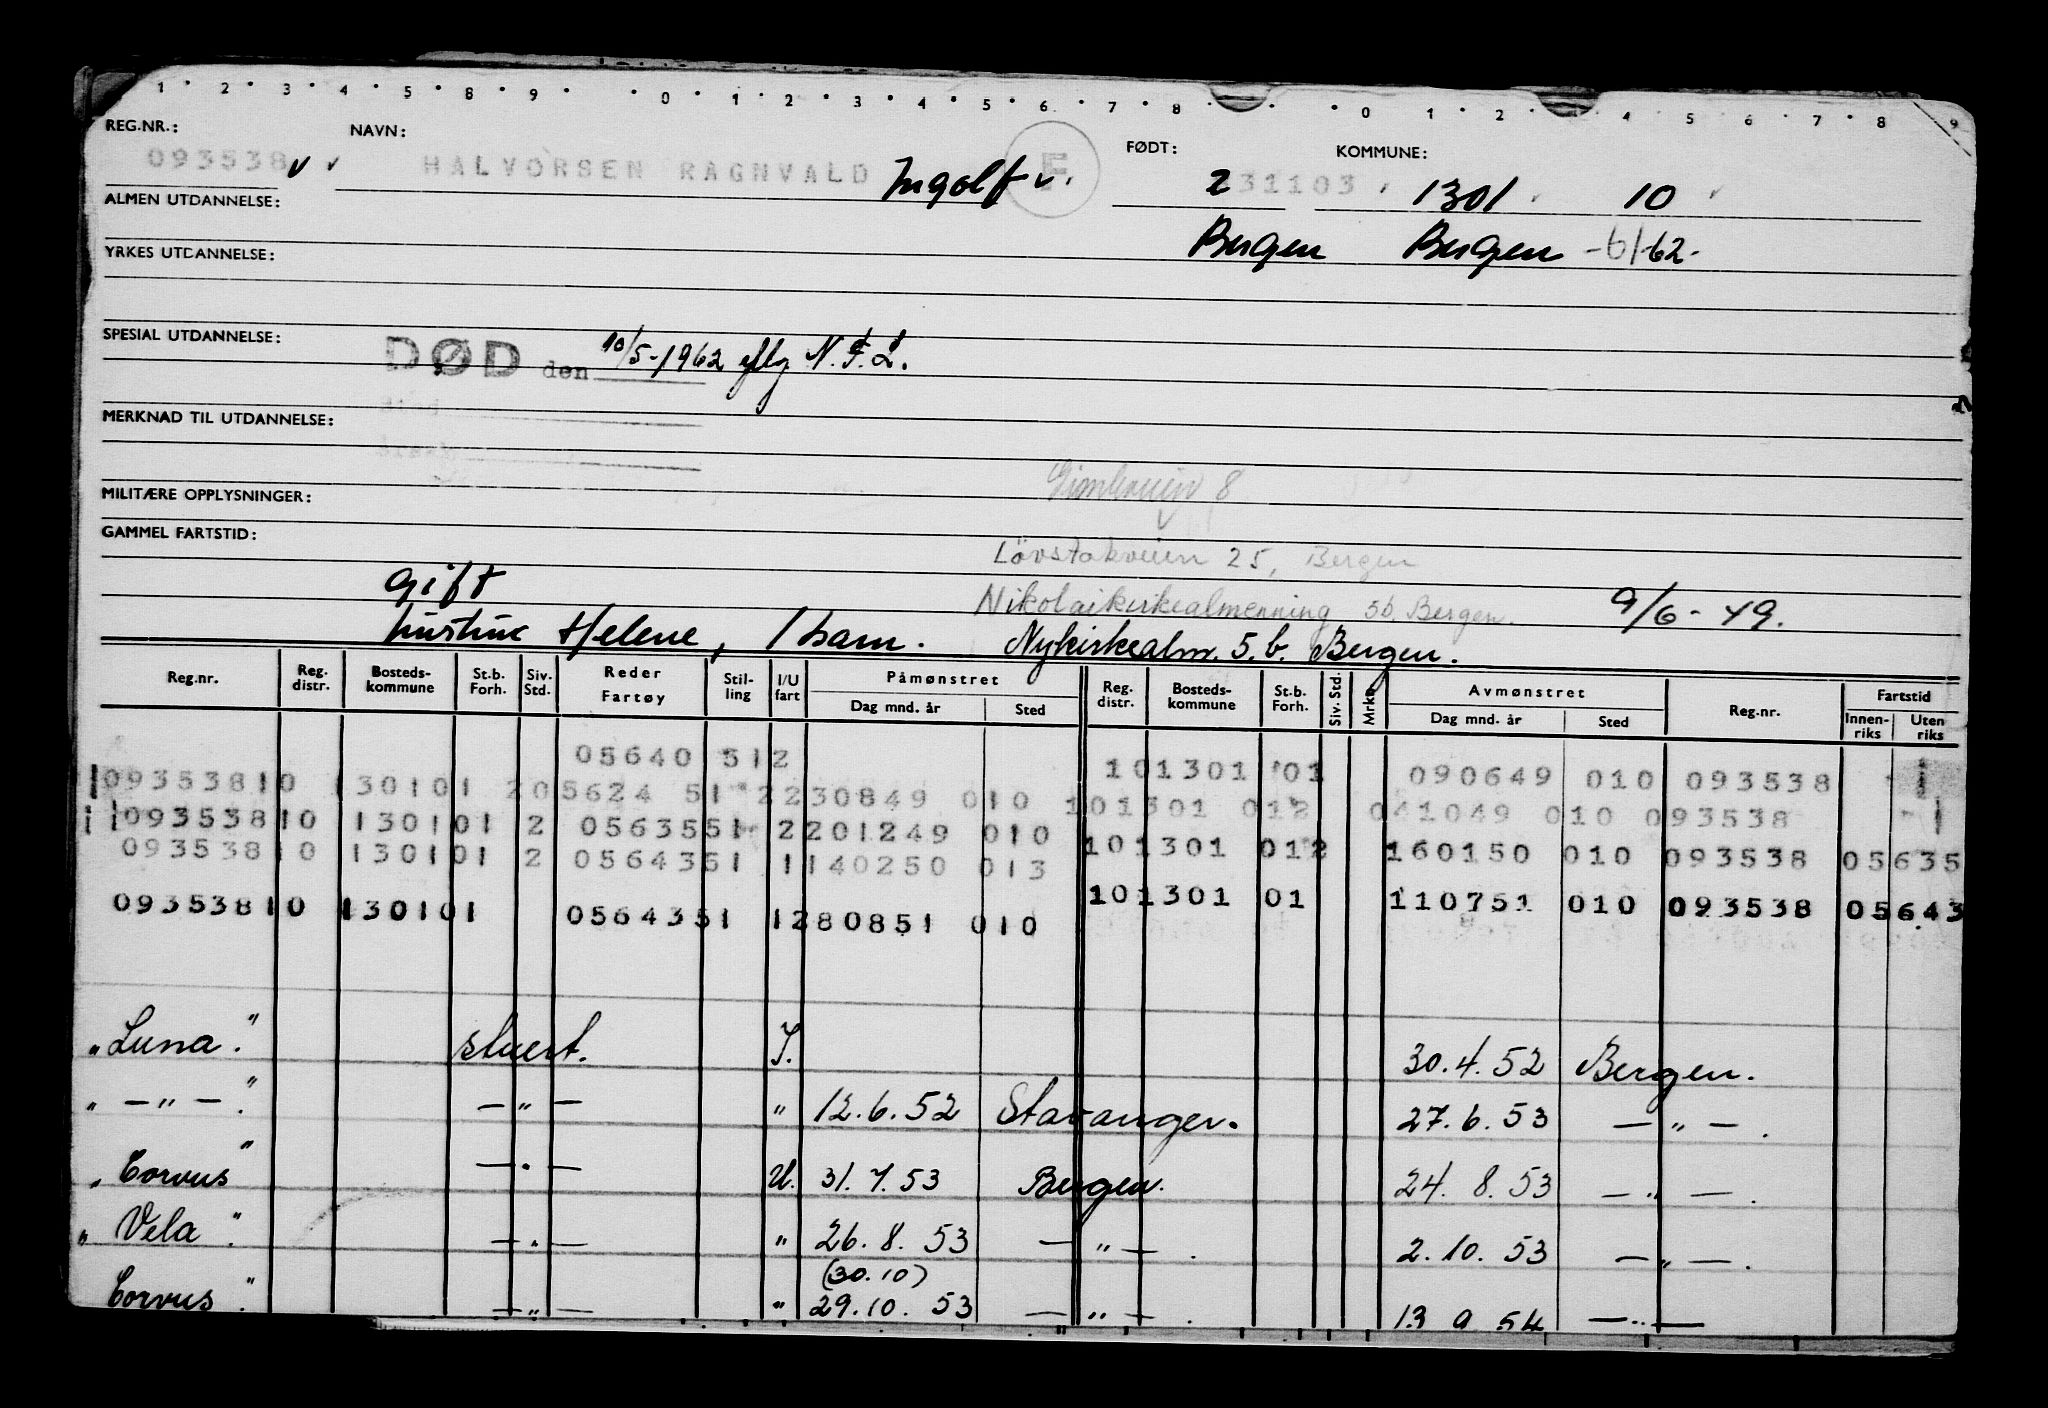 1 2 3 4 5 8 9 0 1 2 3 4 5 6 7 8 0 1 2 4 5 6 7 8 9
REG.NR.: NAVN: FØDT: KOMMUNE:
093538 v v HALVORSEN RAGNVALD Ingolf v. F 231103 1301 10
ALMEN UTDANNELSE:
Bergen Bergen -6/-62-
YRKES UTDANNELSE:
SPESIAL UTDANNELSE:
DØD den 10/5-1962 iflg N.F.L.
MERKNAD TIL UTDANNELSE:
MILITÆRE OPPLYSNINGER: 8
GAMMEL FARTSTID:
Lövstakveien 25, Bergen
gift Nikolaikirkealmenning 5b, Bergen. 9/6-49.
hustru Helene, 1 barn. Nykirkealm. 5.b. Bergen.
Reg.nr. Reg. distr. Bosteds-kommune St.b. Forh. Siv. Std. Reder Fartøy Stil-ling I/U fart Påmønstret Reg. distr. Bosteds-kommune St.b. Forh. Siv. Std. Mrkn Avmønstret Reg.nr. Fartstid
Dag mnd. år Sted Dag mnd. år Sted Innen-riks Uten riks
05640 512 101301 01 090649 010 093538 1
09353810 130101 205624 51 2230849 010 101301 012 041049 010 093538 1
09353810 130101 2 0563551 2201249 010 101301 012 160150 010 093538 05635
09353810 130101 2 0564351 1140250 013 101301 01 110751 010 093538 05643
09353810 130101 0564351 1280851 010
"Luna". stuert. I. 30.4.52 Bergen.
" — " — ". — " — " 12.6.52 Stavanger. 27.6.53 — " — .
"Corvus" — " — U. 31.7.53 Bergen. 24. 8. 53 — " — .
"Vela". — " — " 26. 8. 53 — " — . 2. 10. 53 — " — .
(30.10)
Corvus". — " — " 29.10. 53 — " — . 13 9 54 — " —